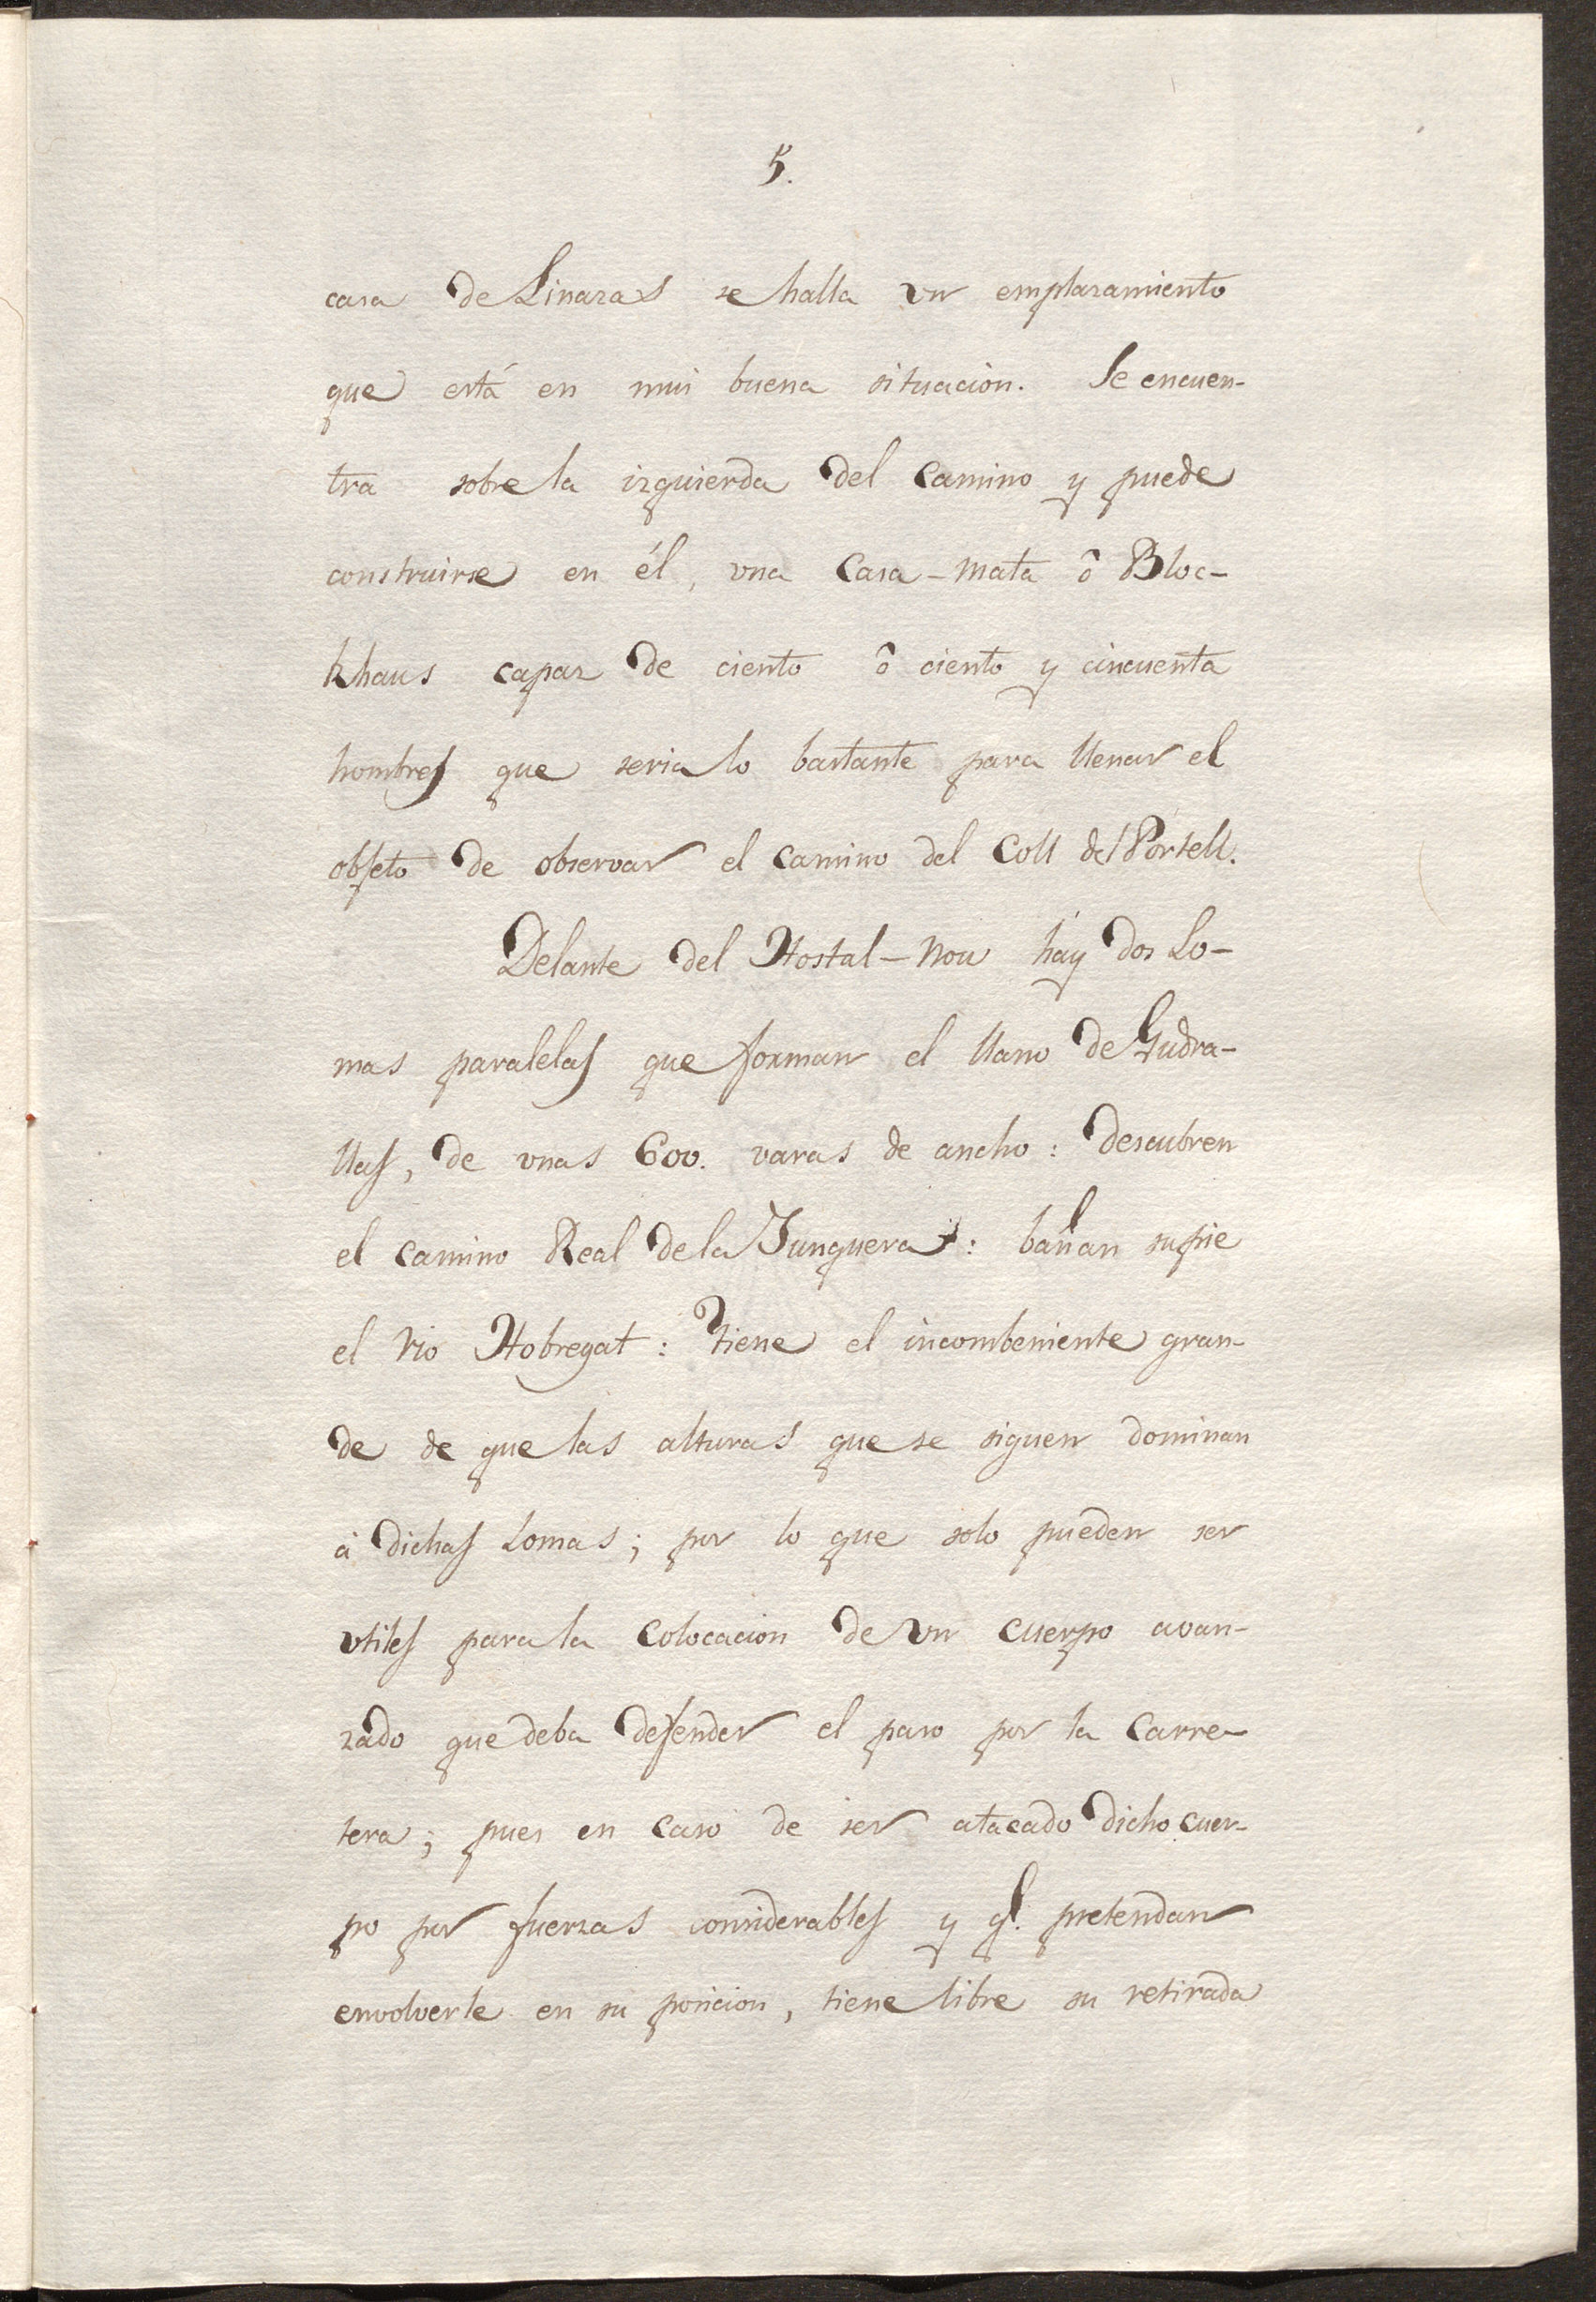 5.
casa de Linaras se halla vn emplazamiento
que está en mui buena situacion. Se encuen-
tra sobre la izquierda del camino y puede
construirse en él, vna Casa-mata ô Bloc-
khaus capaz de ciento ô ciento y cincuenta
hombres que seria lo bastante para llenar el
objeto de observar el camino del Coll del Portell.
Delante del Hostal-Nou háy dos Lo-
mas paralelas que forman el llano de Gudra-
llas, de vnas 600. varas de ancho: descubren
el camino Real de la Junquera: bañan su pie
el rio Llobregat: tiene el incombeniente gran-
de de que las alturas que se siguen dominan
á dichas Lomas; por lo que solo pueden ser
vtiles para la colocacion de vn cuerpo avan-
zado que deba defender el paso por la Carre-
tera; pues en caso de ser atacado dicho cuer-
po por fuerzas considerables y q.e pretendan
envolverle en su posicion, tiene libre su retirada